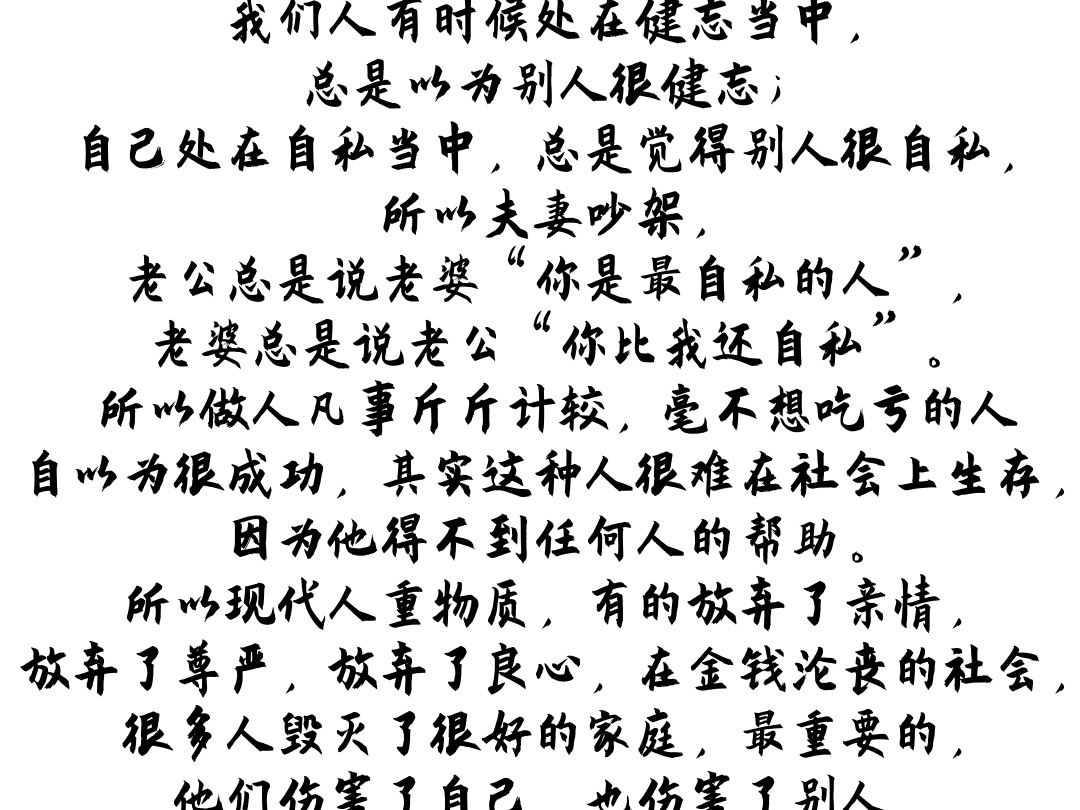 我们人有时候处在健忘当中，
总是以为别人很健忘；
自己处在自私当中，总是觉得别人很自私，
所以夫妻吵架，
老公总是说老婆“你是最自私的人”，
老婆总是说老公“你比我还自私”。
所以做人凡事斤斤计较，毫不想吃亏的人
自以为很成功，其实这种人很难在社会上生存，
因为他得不到任何人的帮助。
所以现代人重物质，有的放弃了亲情，
放弃了尊严，放弃了良心，在金钱沦丧的社会，
很多人毁灭了很好的家庭，最重要的，
他们伤害了自己，也伤害了别人